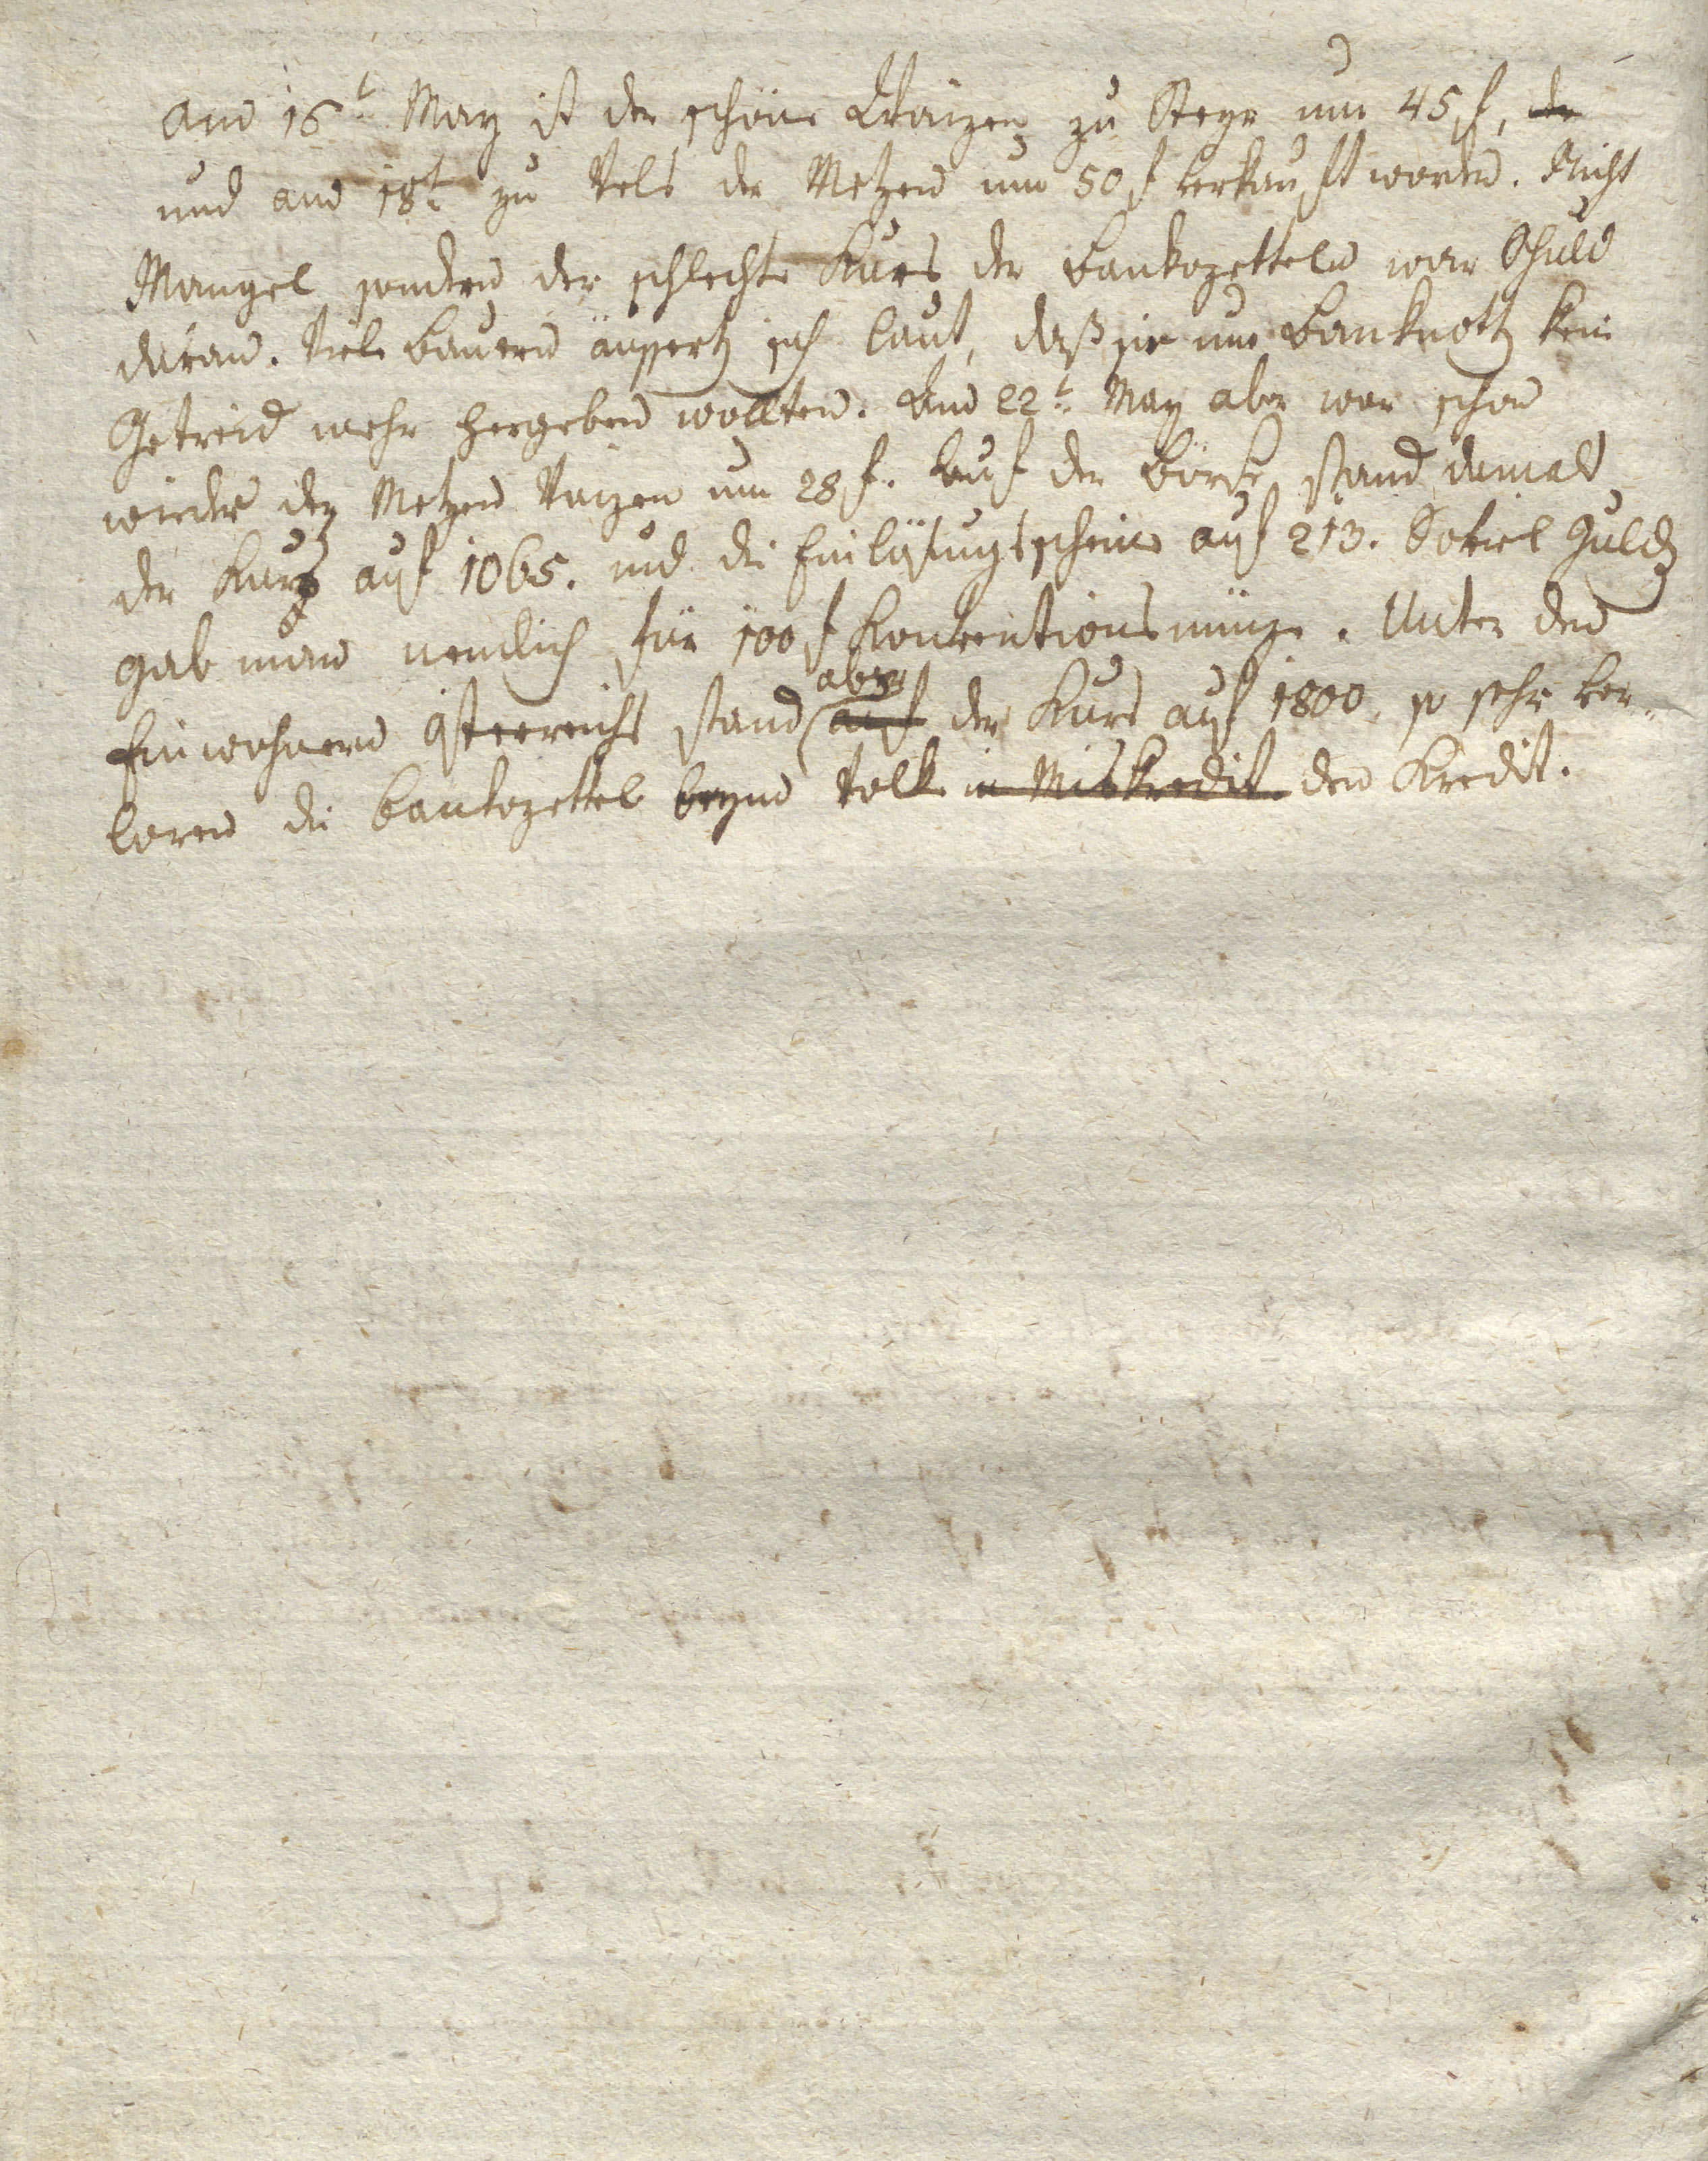 Am 16t May ist der schöne Waizen zu Steyr um 45 f, de
und am 18t zu Wels der Metzen um 50 f verkauft worden. Nicht
Mangel sondern der schlechte Kurs der Bankozetteln war Schuld
daran. Viele Bauern äusserten sich laut, daß sie um Banknotten kein
Getreid mehr hergeben wollten. Am 22t May aber war schon
wieder der Metzen Waizen um 28 f. Auf der Börse stand damals
der Kurs auf 1065. und die Einlösungsscheine auf 213. Soviel Gulden
gab man nemlich für 100 f Konventionsmünze. Unter den
aber
Einwohnern Österreichs stand auf der Kurs auf 1800, so sehr ver-
loren die Bankozettel beym Volk in Miskredit den Kredit.